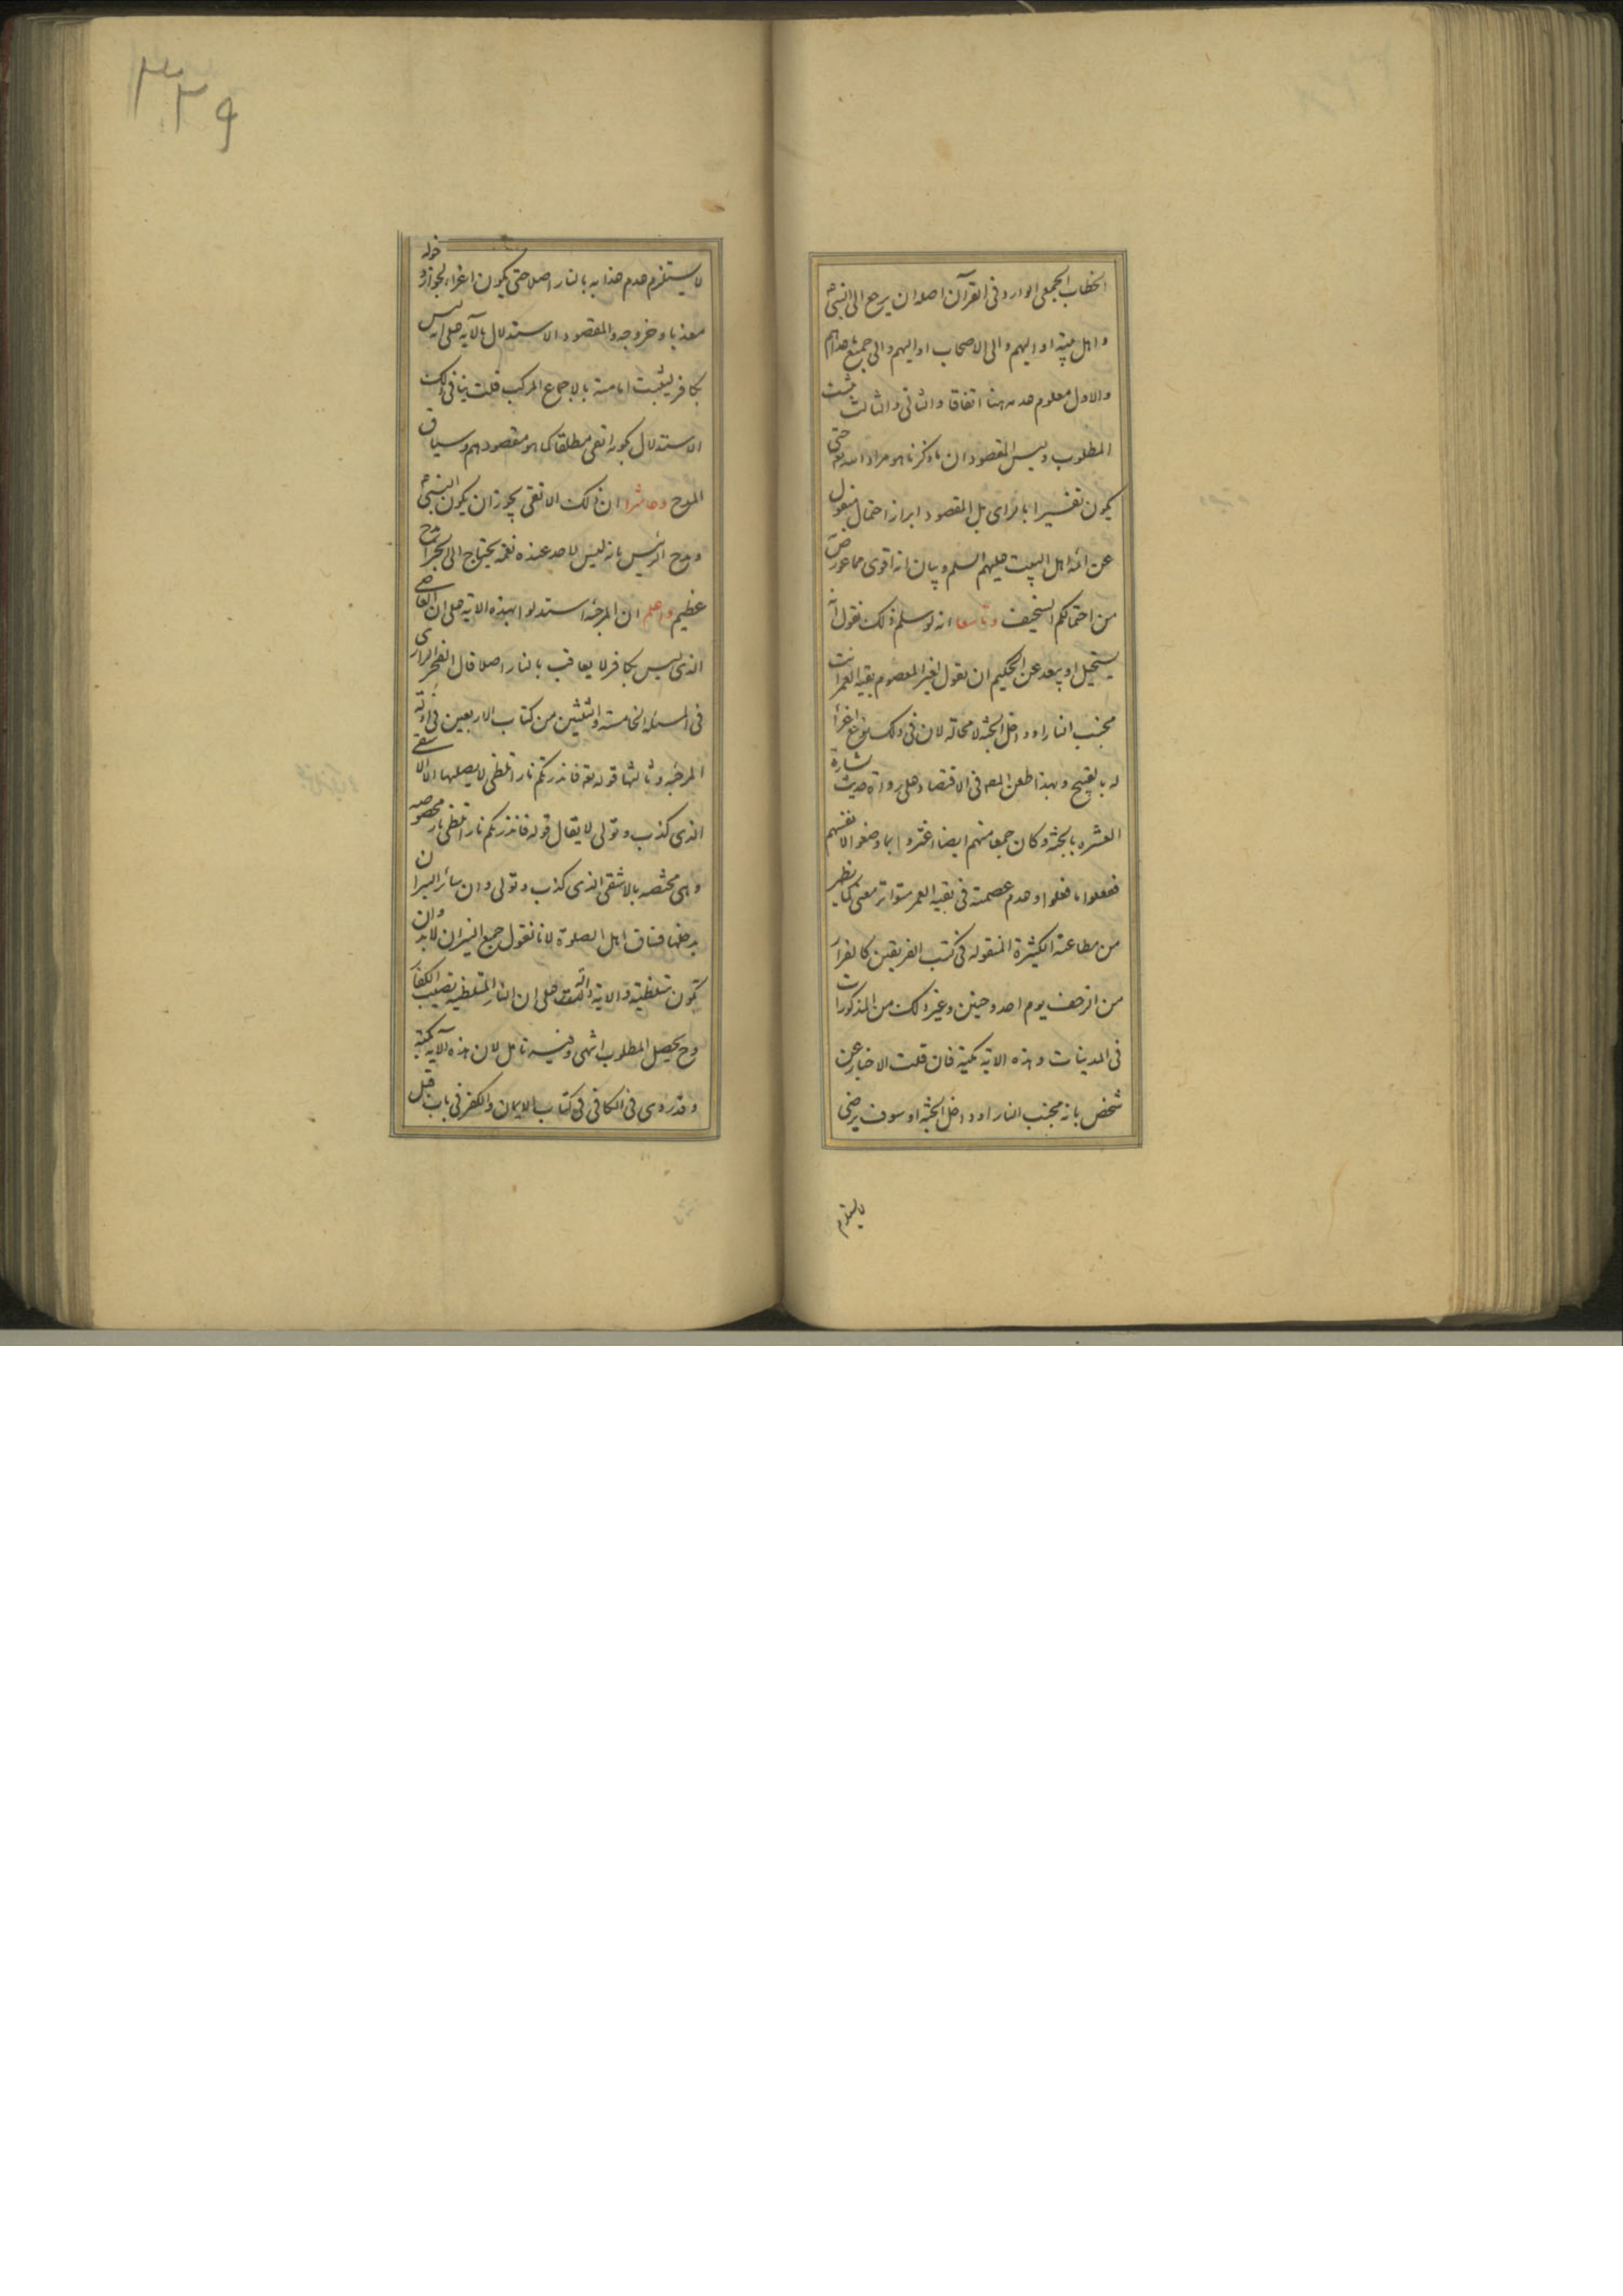 الخطاب الجمعى الوارد فى القرآن اصله ان يرجع الى النبى
و اهل بيته او اليهم والى الاصحاب او اليهم والى جميع
والاول معلوم عدمه هنا اتفاقا والثانى والثالث يثبت
المطلوب وليس المقصود ان ما ذكرنا هو مراد الله تعه حتى
يكون تفسيرا بالراى بل المقصود ابراز احتمال منقول
عن ائمة اهل البيت عليهم السلم وبيان انه اقوى مما عورض
من احتمالكم السخيف وتاسعا انه لو سلم ذلك نقول انه
يستحيل او يبعد عن الحكيم ان يقول لغير المعصوم بقية العمر انت
مجنب النار او داخل الجنة لا محالة لان فى ذلك نوع اغراء
له بالقبيح وبهذا طعن المص فى الاقتصاد على رواة حديث بشارة
العشره بالجنة وكان جمعا منهم ايضا اغتروا بما وضعوا لانفسهم
ففعلوا ما فعلوا وعدم عصمته فى بقية العمر متواتر معنى كما يظهر
من مطاعنه الكثيرة المنقولة فى كتب الفريقين كالفرار
من الزحف يوم احد وحنين وغير ذلك من المذكورات
فى المدينات وهذه الاية مكية فان قلت الاخبار عن
شخص بانه مجنب النار او داخل الجنة او سوف يرضى
لا يستلزم
٣٢٩
لا يستلزم عدم عذابه بالنار اصلا حتى يكون اغراء لجواز دخوله
معذبا وخروجه والمقصود الاستدلال بالآية على انه ليس
بكافر ليثبت امامته بالاجماع المركب قلت ينافى ذلك
الاستدلال بكونه اتقى مطلقا كما هو مقصودهم وسياق
المدح وعاشرا ان ذلك الاتقى يجوز ان يكون النبى
ومدح الرئيس بانه ليس لاحد عنده نعمة يحتاج الى الجزاء مدح
عظيم واعلم ان المرجئه استدلوا بهذه الاية على ان العاصى
الذى ليس بكافر لا يعاقب بالنار اصلا قال الفخر الرازى
فى المسئلة الخامسة والثلثين من كتاب الاربعين فى ادلة
المرجئه وثالثها قوله تعه فانذرتكم نارا تلظى لا يصليها الا الاشقى
الذى كذب وتولى لا يقال قوله فانذرتكم نارا تلظى نار مخصوصه
وهى مختصه بالاشقى الذى كذب وتولى وان سائر النيران
يدخلها فساق اهل الصلوة لانا نقول جميع النيران لابد وان
تكون متلظية والاية دالة على ان النار المتلظية نصيب الكفار
وح يحصل المطلوب انتهى وفيه تامل لان هذه الآية مكية
وقد روى فى الكافى فى كتاب الايمان والكفر فى باب قبل